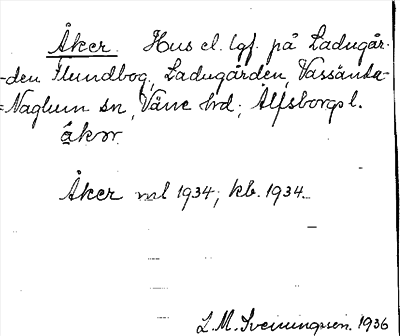 Åker. Hus el. lgf. på Ladugår-
den Flundbog, Ladugården, Vassända-
=Naglum sn, Väne hd; Älfsborgs l.
åkər
Åker val 1934; kb. 1934
L. M. Svenungsson. 1936